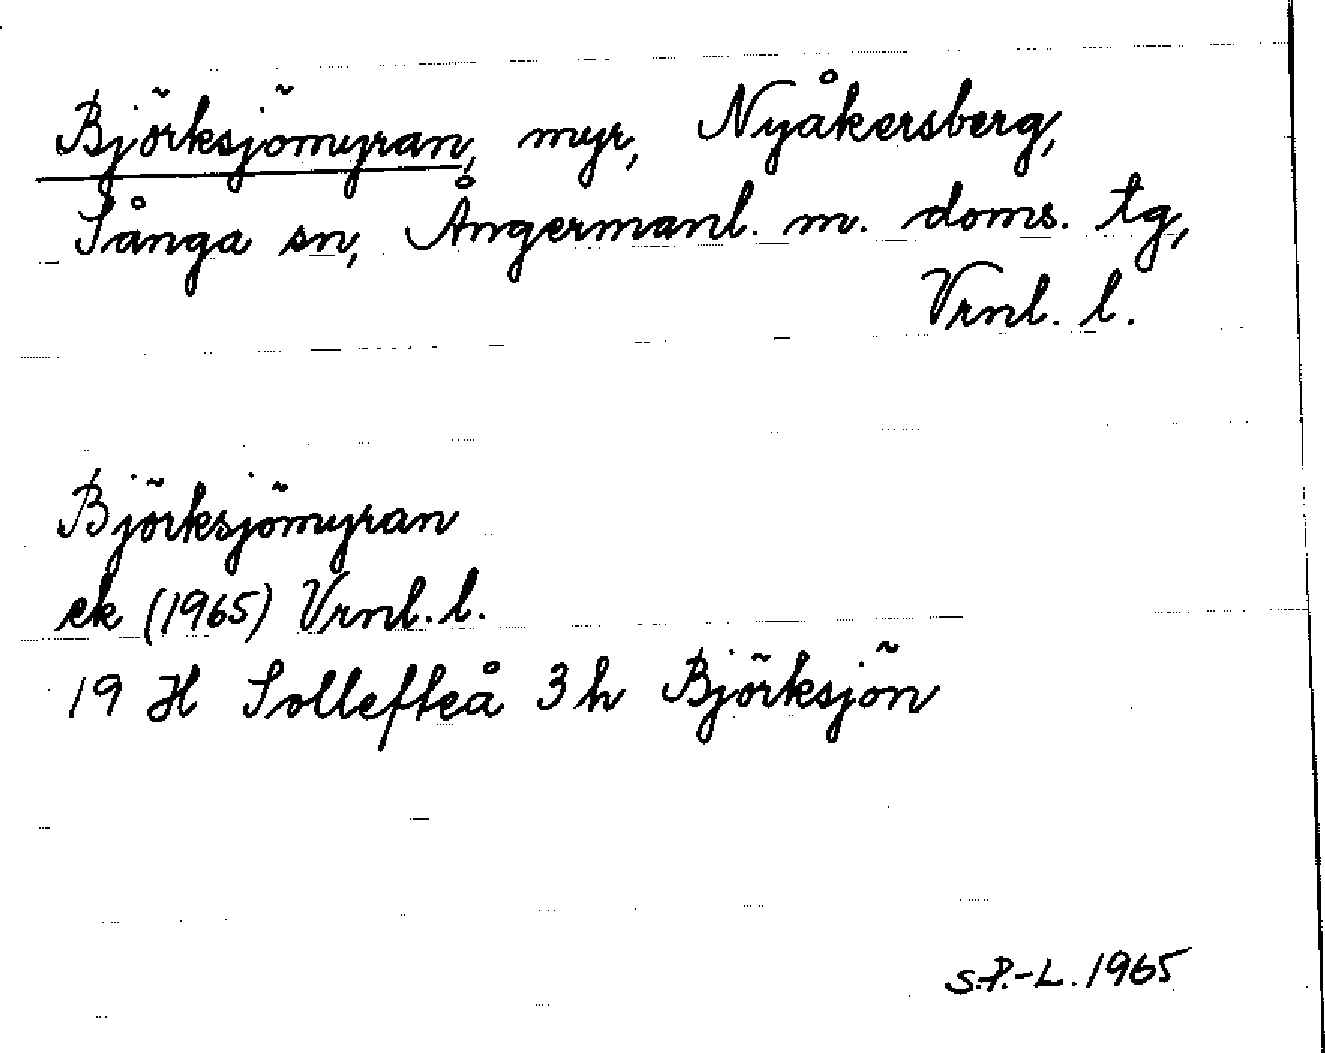 Björksjömyran, myr, Nyåkersberg,
Sånga sn, Ångermanl. m. doms. tg,
Vrnl. l.
Björksjömyran
ek (1965) Vrnl. l.
19 H Sollefteå 3h Björksjön
S.P.-L. 1965